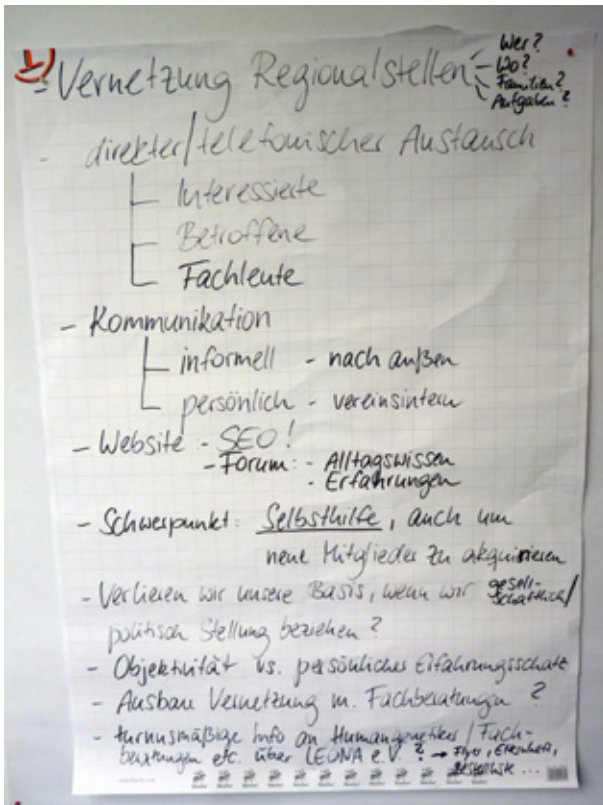 - Vernetzung Regionalstellen
- Wer?
- Wo?
- Familien?
Aufgaben?
- direkter/telefonischer Austausch
Interessierte
Betroffene
Fachleute
- Kommunikation
informell - nach außen
persönlich - vereinsintern
- Website - SEO!
- Forum: - Alltagswissen
- Erfahrungen
- Schwerpunkt: Selbsthilfe, auch um
neue Mitglieder zu akquirieren
- Verlieren wir unsere Basis, wenn wir gesell-
schaftlich/
politisch Stellung beziehen?
- Objektivität vs. persönlicher Erfahrungsschatz
- Ausbau Vernetzung m. Fachberatungen ?
- turnusmäßige Info an Humangenetiker / Fach-
beratungen etc. über LEONA e.V. ? → Flyer, Elternheft,
...